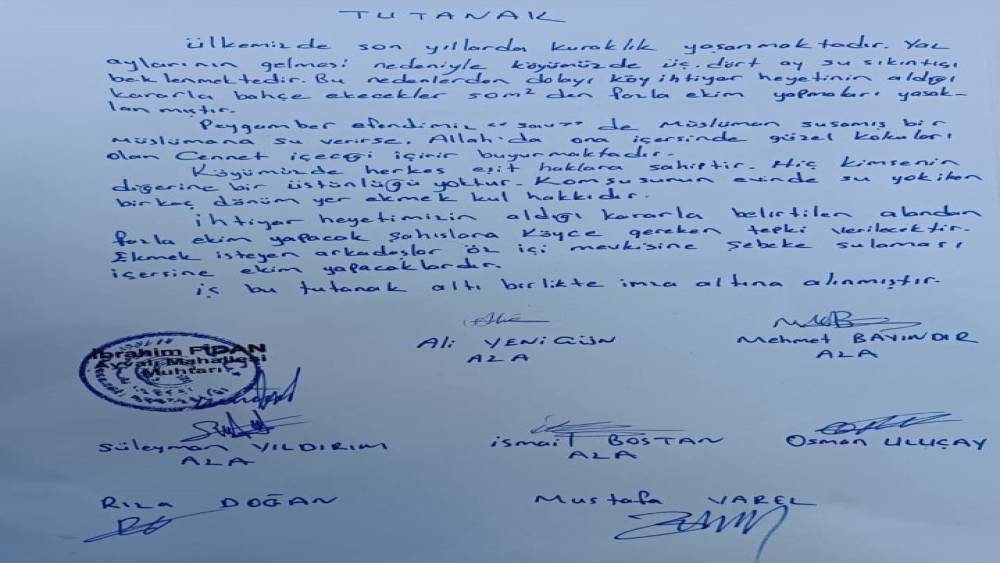 TUTANAK
ülkemizde son yıllarda kuraklık yaşanmaktadır. Yaz
aylarının gelmesi nedeniyle köyümüzde üç.dört ay su sıkıntısı
beklenmektedir. Bu nedenlerden dolayı köy ihtiyar heyetinin aldığı
kararla bahçe ekecekler 50m² den fazla ekim yapmaları yasak-
lanmıştır.
Peygamber efendimiz "sav" de Müslüman susamış bir
müslümana su verirse, Allah'da ona içersinde güzel kokuları
olan Cennet içeceği içirir buyurmaktadır.
Köyümüzde herkes eşit haklara sahiptir. Hiç kimsenin
diğerine bir üstünlüğü yoktur. Komşusunun evinde su yokiken
birkaç dönüm yer ekmek kul hakkıdır.
ihtiyar heyetimizin aldığı kararla belirtilen alandan
fazla ekim yapacak şahıslara köyce gereken tepki verilecektir.
Ekmek isteyen arkadaşlar öz içi mevkisine şebeke sulaması
içersine ekim yapacaklardır.
iş bu tutanak altı birlikte imza altına alınmıştır.
Ali YENİGÜN
AZA
Mehmet BAYINDIR
AZA
İbrahim FİDAN
Ayvalı Mahallesi
Muhtarı
Süleyman YILDIRIM
AZA
ismail BOSTAN
AZA
Osman ULUÇAY
Rıza DOĞAN
Mustafa VAREL